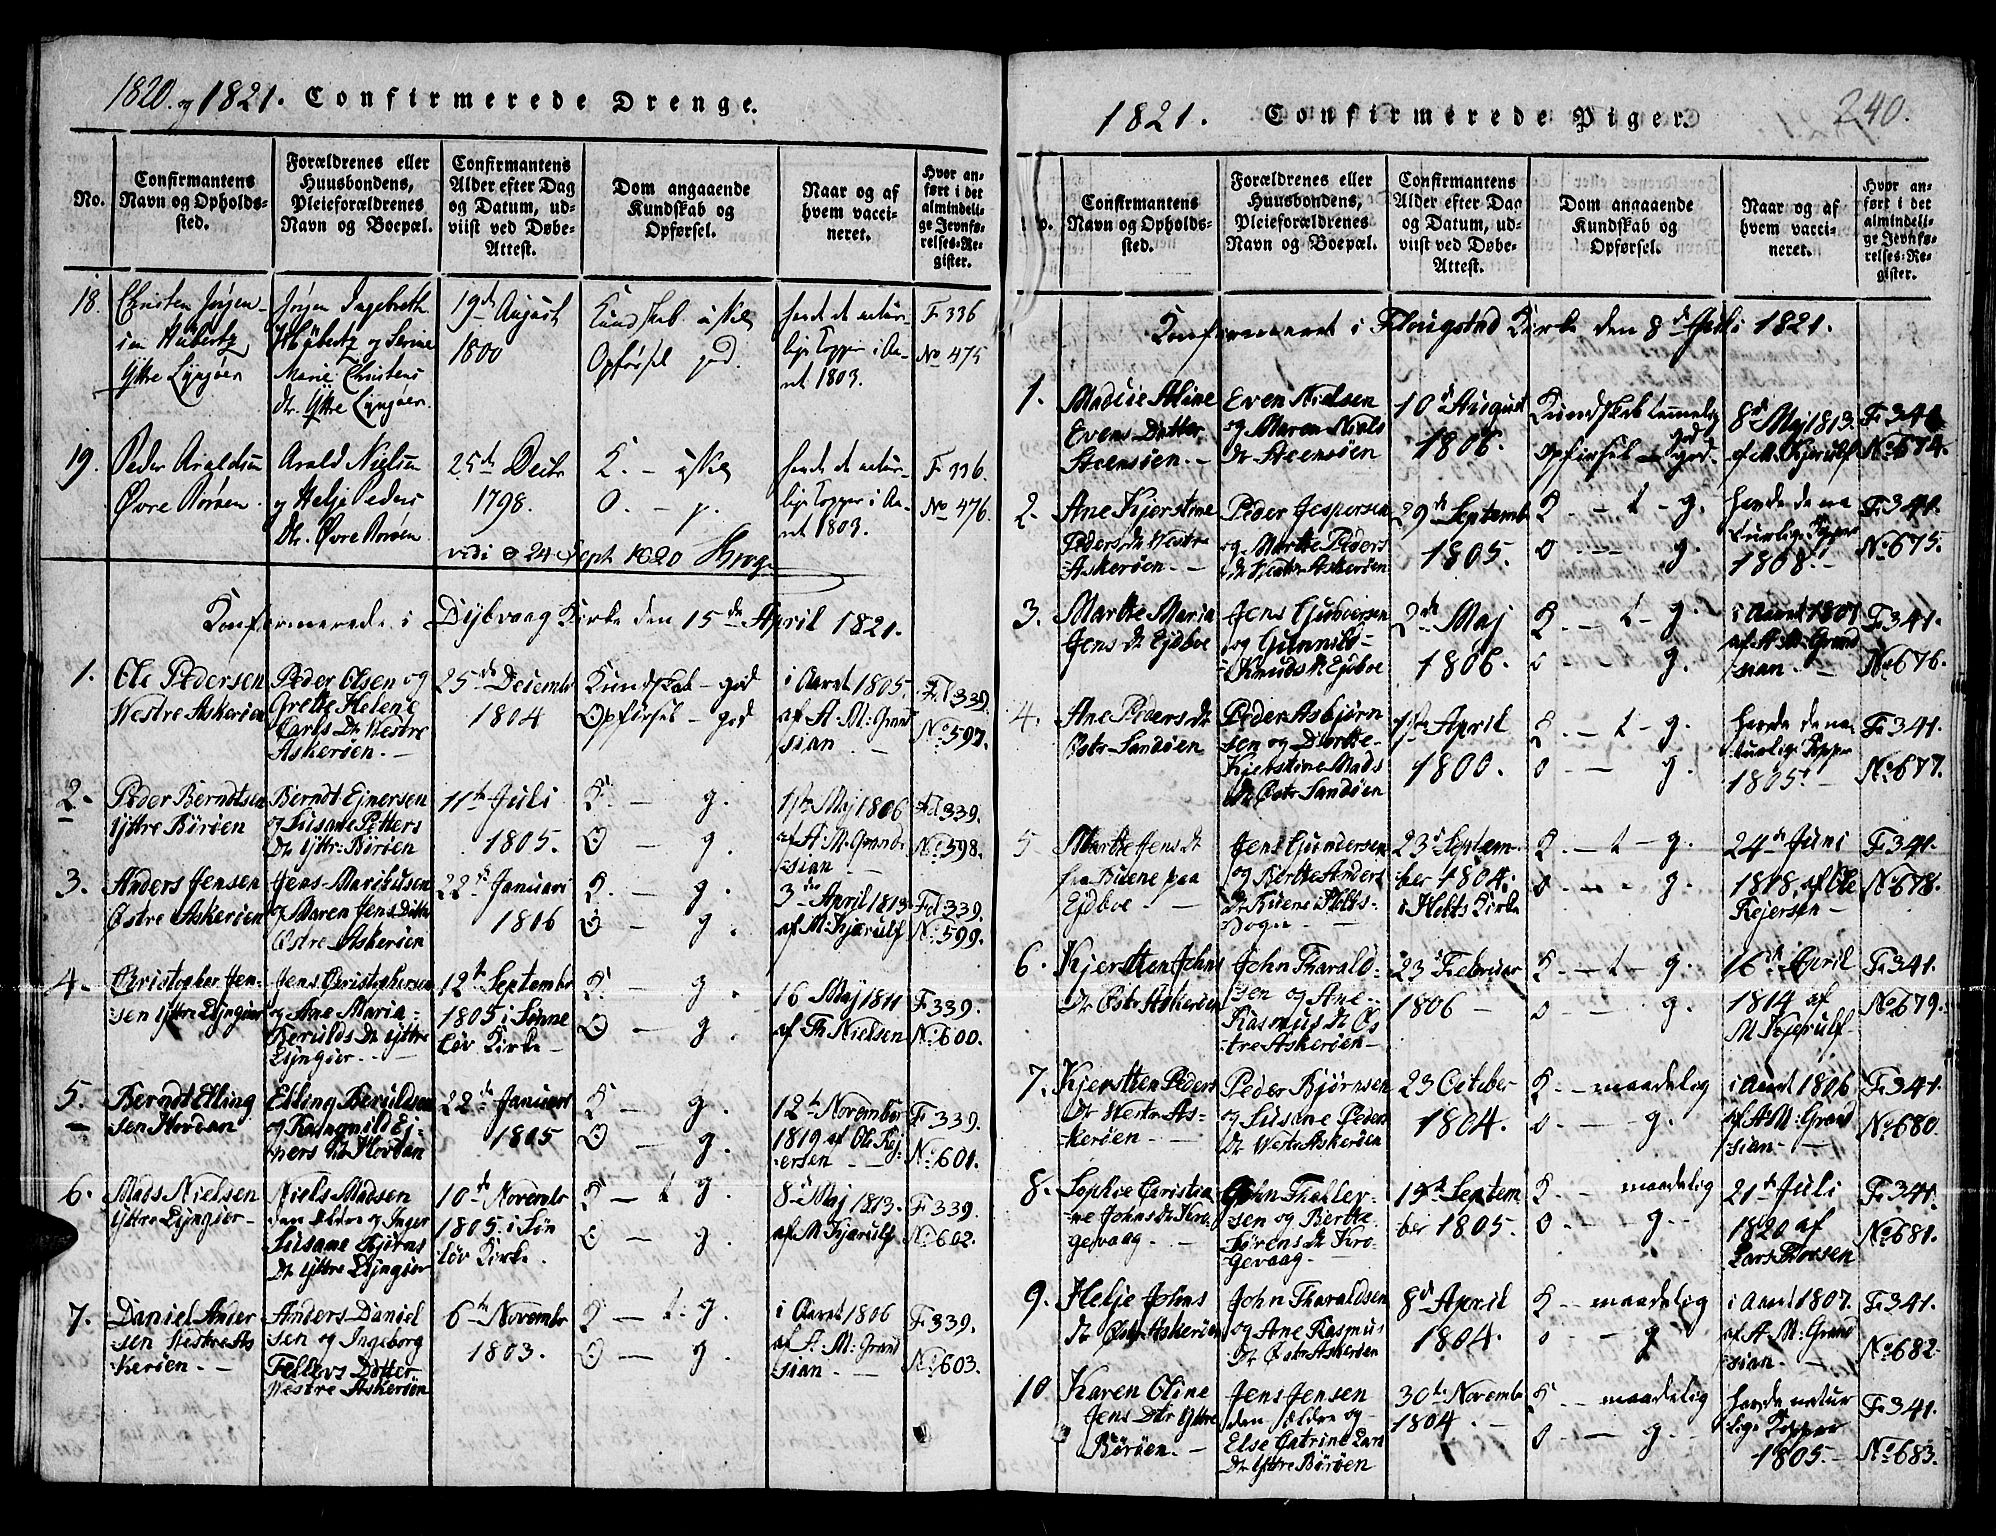 1820. og 1821. Confirmerede Drenge.
No.
Confirmantens
Navn og Opholds-
sted.
Forældrenes eller
Huusbondens,
Pleieforældrenes
Navn og Boepæl.
Confirmantens
Alder efter Dag
og Datum, ud-
viist ved Døbe-
Attest.
Dom angaaende
Kundskab og
Opførsel.
Naar og af
hvem vacci-
neret.
Hvor an-
ført i det
almindeli-
ge Jevnfø-
relses-Re-
gister.
18.
Christen Jørgen-
sen Hübertz
Yttre Lyngøer
Jørgen Ingebreth
Hübertz og Serine
Marie Christens
Dr. Yttre Lyngøer.
19de August
1800
Kundskab
Opførsel god.
havde de natur-
lige Kopper i Aa-
ret 1803.
F. 336
No 475
19.
Peder Araldsen
Øvre Rørven.
Arald Nielsen
og Helje Peders
Dr. Øvre Rørven
25de Decbr
1798.
K. -
O. - g.
havde de natur-
lige Kopper i Aa-
ret 1803.
F. 336.
No 476.
vidi 24 Sept. 1820 Krog
Konfirmerede i Dybvaag Kirke den 15de April 1821.
1.
Ole Pedersen
Westre Askerøen
Peder Olsen og
Grette Helene
Carls Dr. Westre
Askerøen. -
25de Decembr
1804
Kundskab - god
Opførsel - god
i Aaret 1805.
af A. M: Grand
sian. -
Fol 339.
No. 597.
2.
Peder Berndtsen
Yttre Børøen
Berndt Ejnersen
og Susane Petters
Dr. Yttr: Børøen
11te Juli
1805.
K. - g.
O - g.
1ste Maj 1806
af A. M: Grand
sian. -
Fol 339.
No. 598.
3.
Anders Jensen
Østre Askerøen
Jens Marikusen
og Maren Jens Datter
Østre Askerøen
22de Januari
1806
K. - g.
O - g.
3die April 1813.
af M: Kjærulf
Fol 339.
No. 599.
4.
Christopher Jen-
sen Yttre Lyngøer
Jens Christophersen
og Ane Maria-
Beruld's Dr. Yttre
Lyngiør. -
12te Septembr
1805 i Sønne
løv Kirke -
K. - g.
O - g.
16 Maj 1811
af Th: Nielsen
F. 339.
No. 600.
5.
Berndt Elling
sen Hovdan
Elling Beruldsen
og Rangnild Ej-
ners Dr. Hovdan
22de Januari
1805
K - g.
O - g.
12te November
1819 af Ole Rej-
ersen - -
F. 339.
No. 601.
6.
Mads Nielsen
Yttre Lyngiør-
Niels Madsen
den ældre og Inger
Susane Bjørns
Dr. Yttre Lyngiør
10de Novembr
1805. i Søn
løv Kirke.
K - t g.
O - g.
8de Maj 1813.
af M: Kjærulf
F. 339.
No. 602.
7.
Daniel Ander
sen Westre As
kerøen. -
Anders Daniel
sen og Ingeborg
Tellefs Datter
Westre Askerøen
6te Novembr
1803.
K - t. g.
O - g.
i Aaret 1806
af A. M: Grand
sian. -
F. 339.
No. 603.
1821. Confirmerede Piger.
240.
Confirmantens
Navn og Opholds-
sted.
Forældrenes eller
Huusbondens,
Pleieforældrenes
Navn og Boepæl.
Confirmantens
Alder efter Dag
og Datum, ud-
viist ved Døbe-
Attest.
Dom angaaende
Kundskab og
Opførsel.
Naar og af
hvem vacci-
neret.
Hvor an-
ført i det
almindeli-
ge Jevnfø-
relses-Re-
gister.
Konfirmeret i Flougstad Kirke den 8de Juli 1821.
1.
Madcie Aline
Evens Datter
Steensøen. -
Even Nielsen
og Maren Niels
Dr Steensøen
10de August
1806.
Kundskab temmelig
god
Opførsel - god.
8de Maj 1813.
af M. Kjærulf
F. 341.
No. 674.
2.
Ane Kjerstine
Peders Dr. Westre
Askerøen. -
Peder Jespersen
og Marthe Peders
Dr. Westr. Askerøen
29de Septemb
1805.
K. - t - g.
o - g.
havde de na
turlige Kopper
1808. -
F. 341.
No. 675.
3.
Marthe Maria
Jens Dr. Ejdboe
Jens Gundersen
og Gunnild-
Knuds Dr Ejdboe
2de Maj
1806.
K. - t - g.
o - g.
i Aaret 1807
af A. M: Grand
sian. -
F. 341.
No. 676.
4.
Ane Peders Dr.
Østr Sandøen
Peder Asbjørn
sen og Dorthe-
Kjerstine Mads
Dr Østr Sandøen
1ste April
1800.
K. - t - g.
o - g.
havde de na
turlige Kopper
1805.
F. 341.
No. 677.
5
Marthe Jens Dr
fra Biene paa
Ejdboe -
Jens Gundersen
og Berthe Anders
Dr. Biene i Holts-
Sogn -
23de Septem-
ber 1804.
i Holts Kirke
K. - t - g.
o - g.
24de Juni
1818. af Ole
Rejersen -
F. 341.
No. 678.
6.
Kjersten Johns
Dr. Østr Askerøen
John Tharald-
sen og Ane-
Rasmus Dr. Øs
tre Askerøen -
23de Februar
1806 -
K - t - g.
o - g.
16de April
1814 af
M Kjerulf-
F. 341.
No. 679.
7.
Kjersten Peders
Dr. Westr. As-
kerøen. -
Peder Bjørnsen
og Susane Peders
Dr Westr Askerøen
23 October
1804.
K. - maadelig
o - g.
i Aaret 1806
af A. M: Grand
sian. -
F. 341.
No. 680.
8.
Sophie Christia
ne Johns Dr. Kro-
gevaag. -
John Thellef-
sen og Berthe-
Sørens Dr. Kro-
gevaag -
19de Septem
ber 1805.
K - maadelig
o - g.
21de Juli
1820 af
Lars Thorsen
F. 341.
No. 681.
9.
Helje Johns
Dr. Østr Askerøen
John Tharaldsen
og Ane Rasmus
Dr. Østr Askerøen
8de April
1804.
K - maadelig
o - g
i Aaret 1807.
af A. M: Grand
sian. -
F. 341.
No. 682.
10
Karen Oline
Jens Datr Yttre
Børøen. -
Jens Jensen
den ældre og-
Else Catrine Lars
Dr. Yttre Børøen
30te Novemb
1804. -
K - maadelig
o - g. -
havde natur
lige Kopper
1805. -
F. 341.
No. 683.